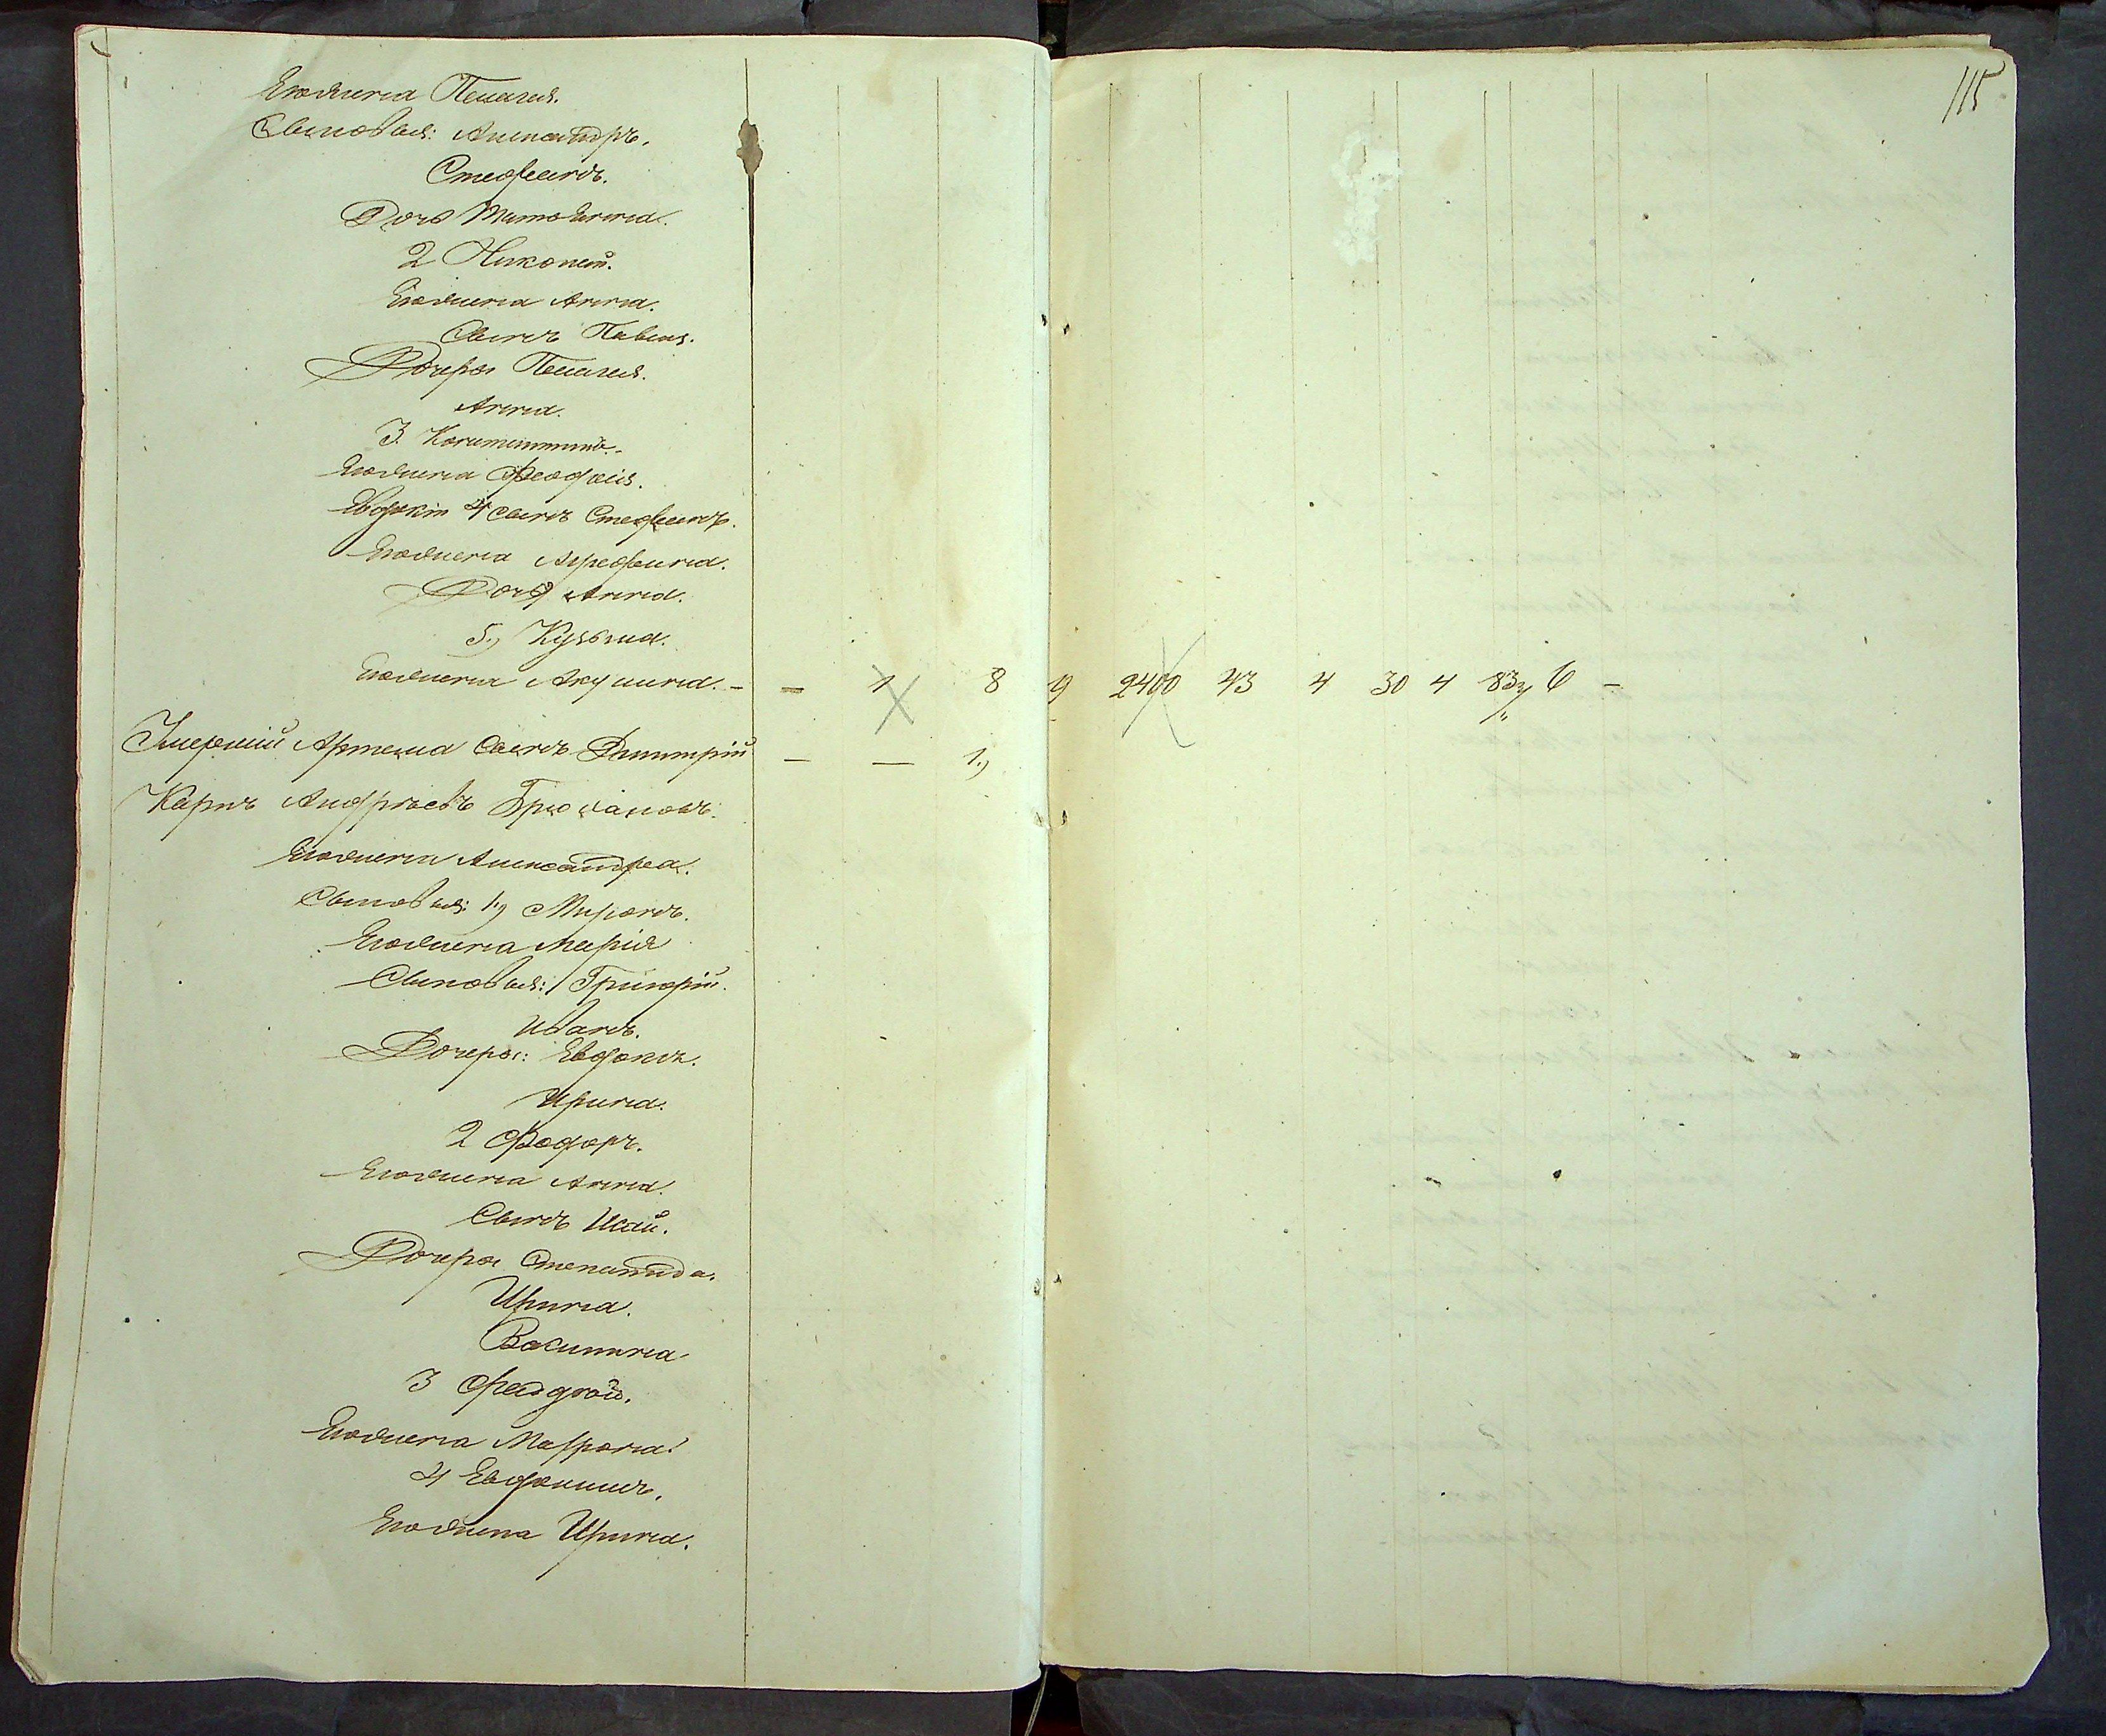 115
Его жена Пелагея.
Сыновья: Александръ.
Стефанъ.
Дочь Татьянна.
2 Николай.
Его жена Анна.
Сынъ Павелъ.
Дочери Пелагея.
Анна.
3. Константинъ.
Его жена Феодосія.
4 сынъ Стефанъ.
Его жена Аграфена.
Дочь Анна.
5.) Кузьма.
Его жена Акулина. - - 1 8 9 2400 43 4 30 4 83 6 -
Умершій Артема сынъ Дмитрій - - 1.)
Карпъ Андреевъ Брюхановъ.
Его жена Александра.
Сыновья: 1.) Миронъ.
Его жена Марія
Сыновья: Григорій.
Иванъ.
Дочери: Евдокія.
Ирина.
2 Федоръ.
Его жена Анна.
Сынъ Исай.
Дочери Степанида.
Ирина.
Василина
3 Федотъ.
Его жена Матрона.
4 Евдокимъ.
Его жена Ирина.